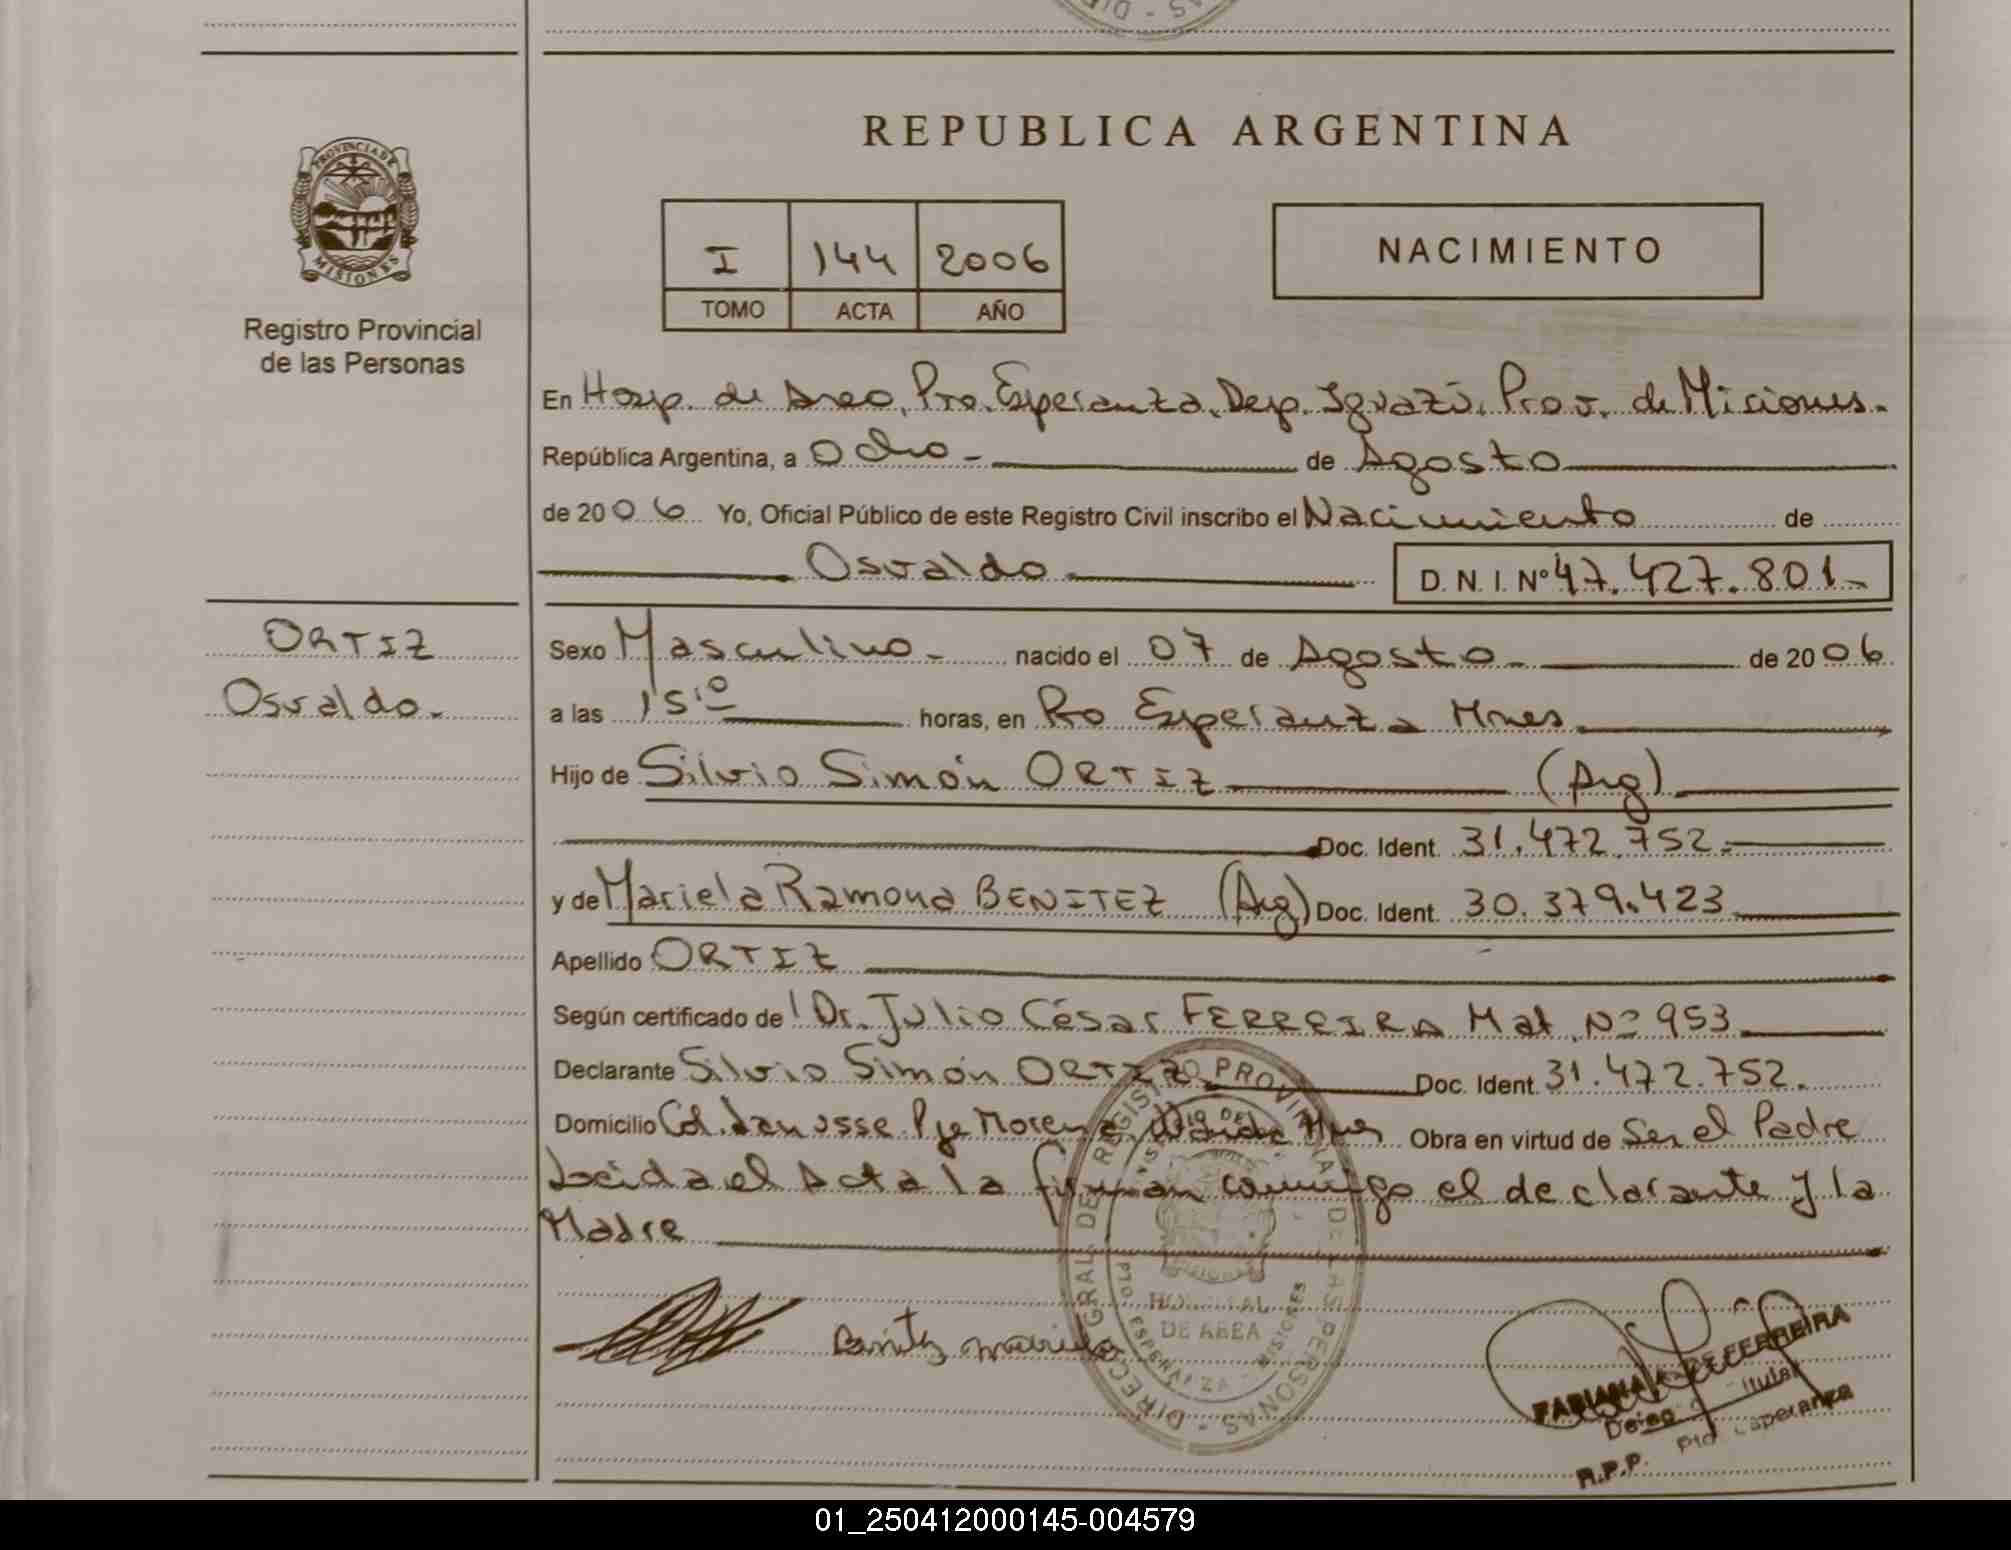 REPUBLICA ARGENTINA
PROVINCIA DE
MISIONES
Registro Provincial
de las Personas
I 144 2006
TOMO ACTA AÑO
NACIMIENTO
En Hosp. de Area, Pto. Esperanza, Dep. Iguazú, Prov. de Misiones.
República Argentina, a Ocho - de Agosto
de 2006 Yo, Oficial Público de este Registro Civil inscribo el Nacimiento de
Osvaldo D.N.I. Nº 47.427.801.-
ORTIZ
Osvaldo.-
Sexo Masculino.- nacido el 07 de Agosto - de 2006
a las 15:10 horas, en Pto Esperanza Mnes
Hijo de Silvio Simón ORTIZ (Arg)
Doc. Ident. 31.472.752.
y de Mariela Ramona BENITEZ (Arg) Doc. Ident. 30.379.423
Apellido ORTIZ
Según certificado del Dr. Julio César FERREIRA Mat. Nº 953
Declarante Silvio Simón ORTIZ Doc. Ident. 31.472.752.
Domicilio Col. Lanusse Pje Moreno Wanda Mnes Obra en virtud de Ser el Padre
Leida el Acta la firman conmigo el declarante y la
Madre
Benitez Mariela
DIREC. GRAL. DEL REGISTRO PROVINCIAL DE LAS PERSONAS
HOSPITAL
DE AREA
PTO ESPERANZA - MISIONES
FABIANA DE FERREIRA
Deleg Titular
R.P.P. Pto Esperanza
01_250412000145-004579